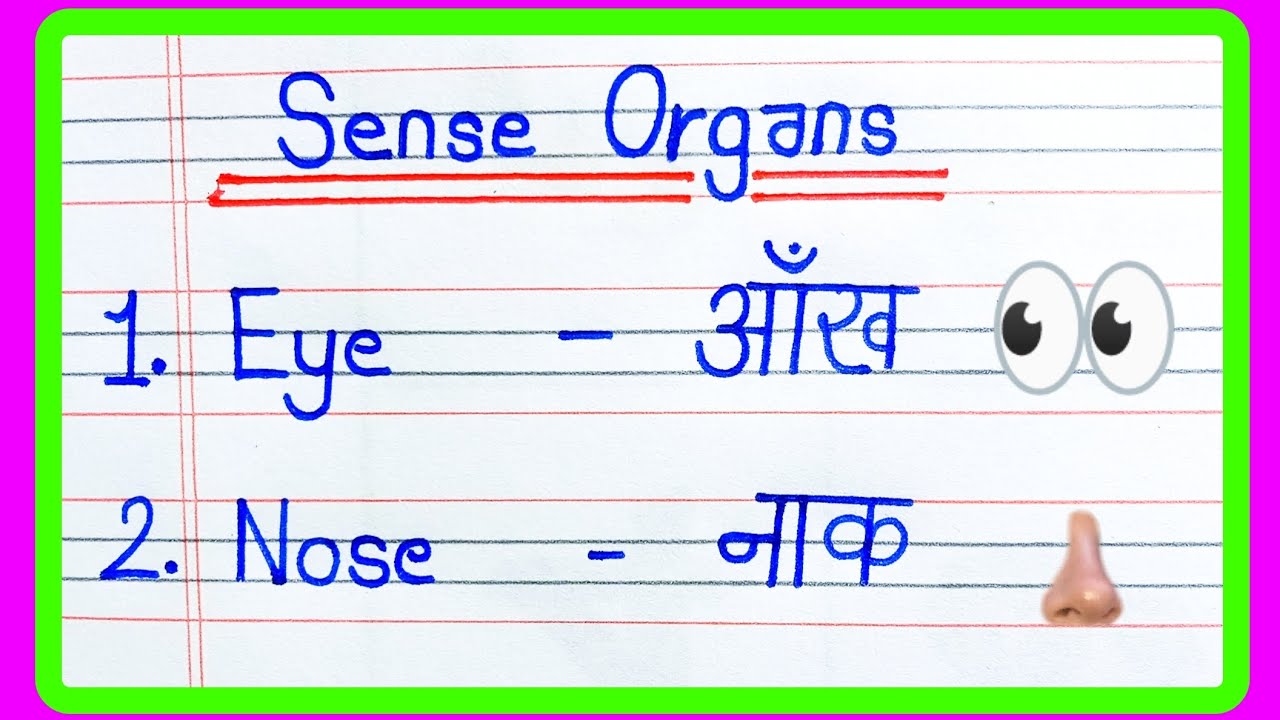 Sense Organs
1. Eye - आँख
2. Nose - नाक